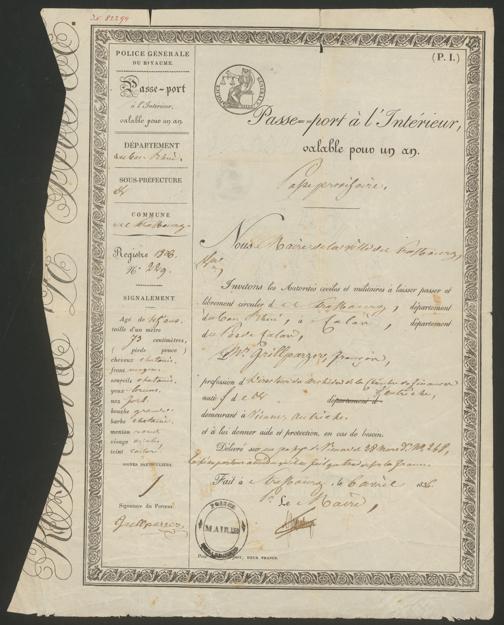 (P. I.)
POLICE GÉNÉRALE
DU ROYAUME.
Passe-port
à l'Intérieur,
valable pour un an.
DÉPARTEMENT
du Bas-Rhin.
SOUS-PRÉFECTURE
COMMUNE
de Strasbourg
Registre
N.º 229.
SIGNALEMENT
Agé de 45 ans
taille d'un mètre
73 centimètres,
( pieds pouce )
cheveux chatains
front moyen
sourcils chatains
yeux bruns
nez fort
bouche grande
barbe chataine
menton rond
visage ovale
teint coloré
SIGNES PARTICULIERS
Signature du Porteur
Grillparzer
Passe-port à l'Intérieur,
valable pour un an.
Passe provisoire.
Nous Maire de la ville de Strasbourg,
Invitons les Autorités civiles et militaires à laisser passer et
librement circuler de Strasbourg, département
du Bas Rhin, à Calais, département
du Pas de Calais,
Mr. Grillparzer, François,
profession de Directeur des Archives de la Chambre des finances
natif de département d Autriche,
demeurant à Vienne, Autriche
et à lui donner aide et protection, en cas de besoin.
Délivré sur 28 Mars
Fait à Strasbourg, le 6 avril 1836
Le Maire,
MAIRIE
DEUX FRANCS.